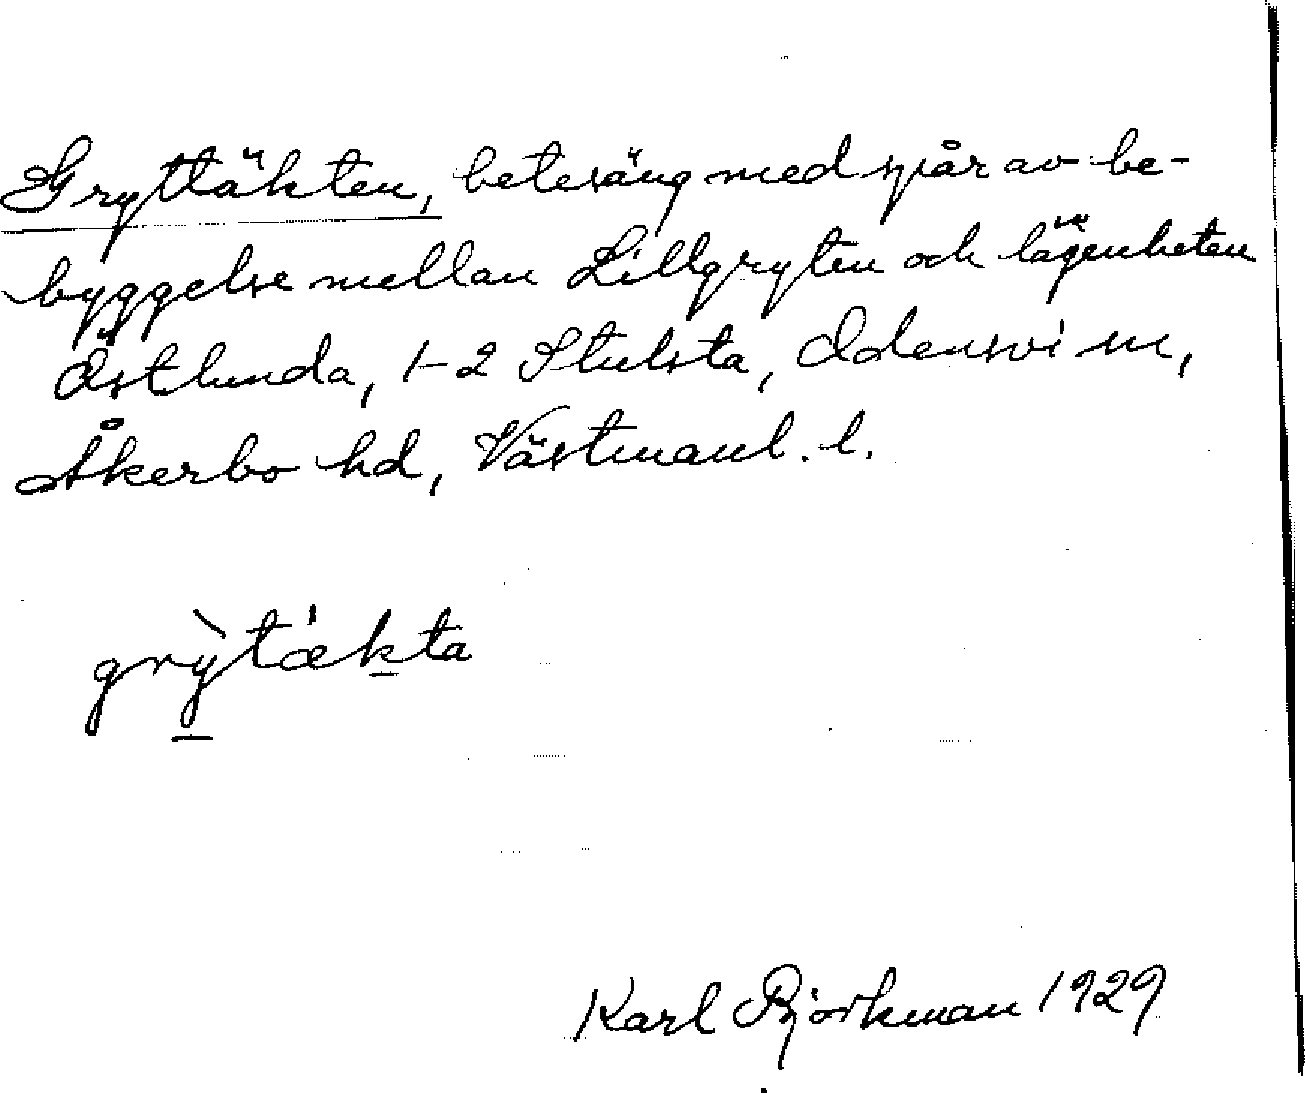 Gryttäkten, betesäng med spår av be-
byggelse mellan Lillgryten och lägenheten
Östlunda, 1-2 Stulsta, Odensvi sn,
Åkerbo hd, Västmanl. l.
grỳtækta
Karl Björkman 1929